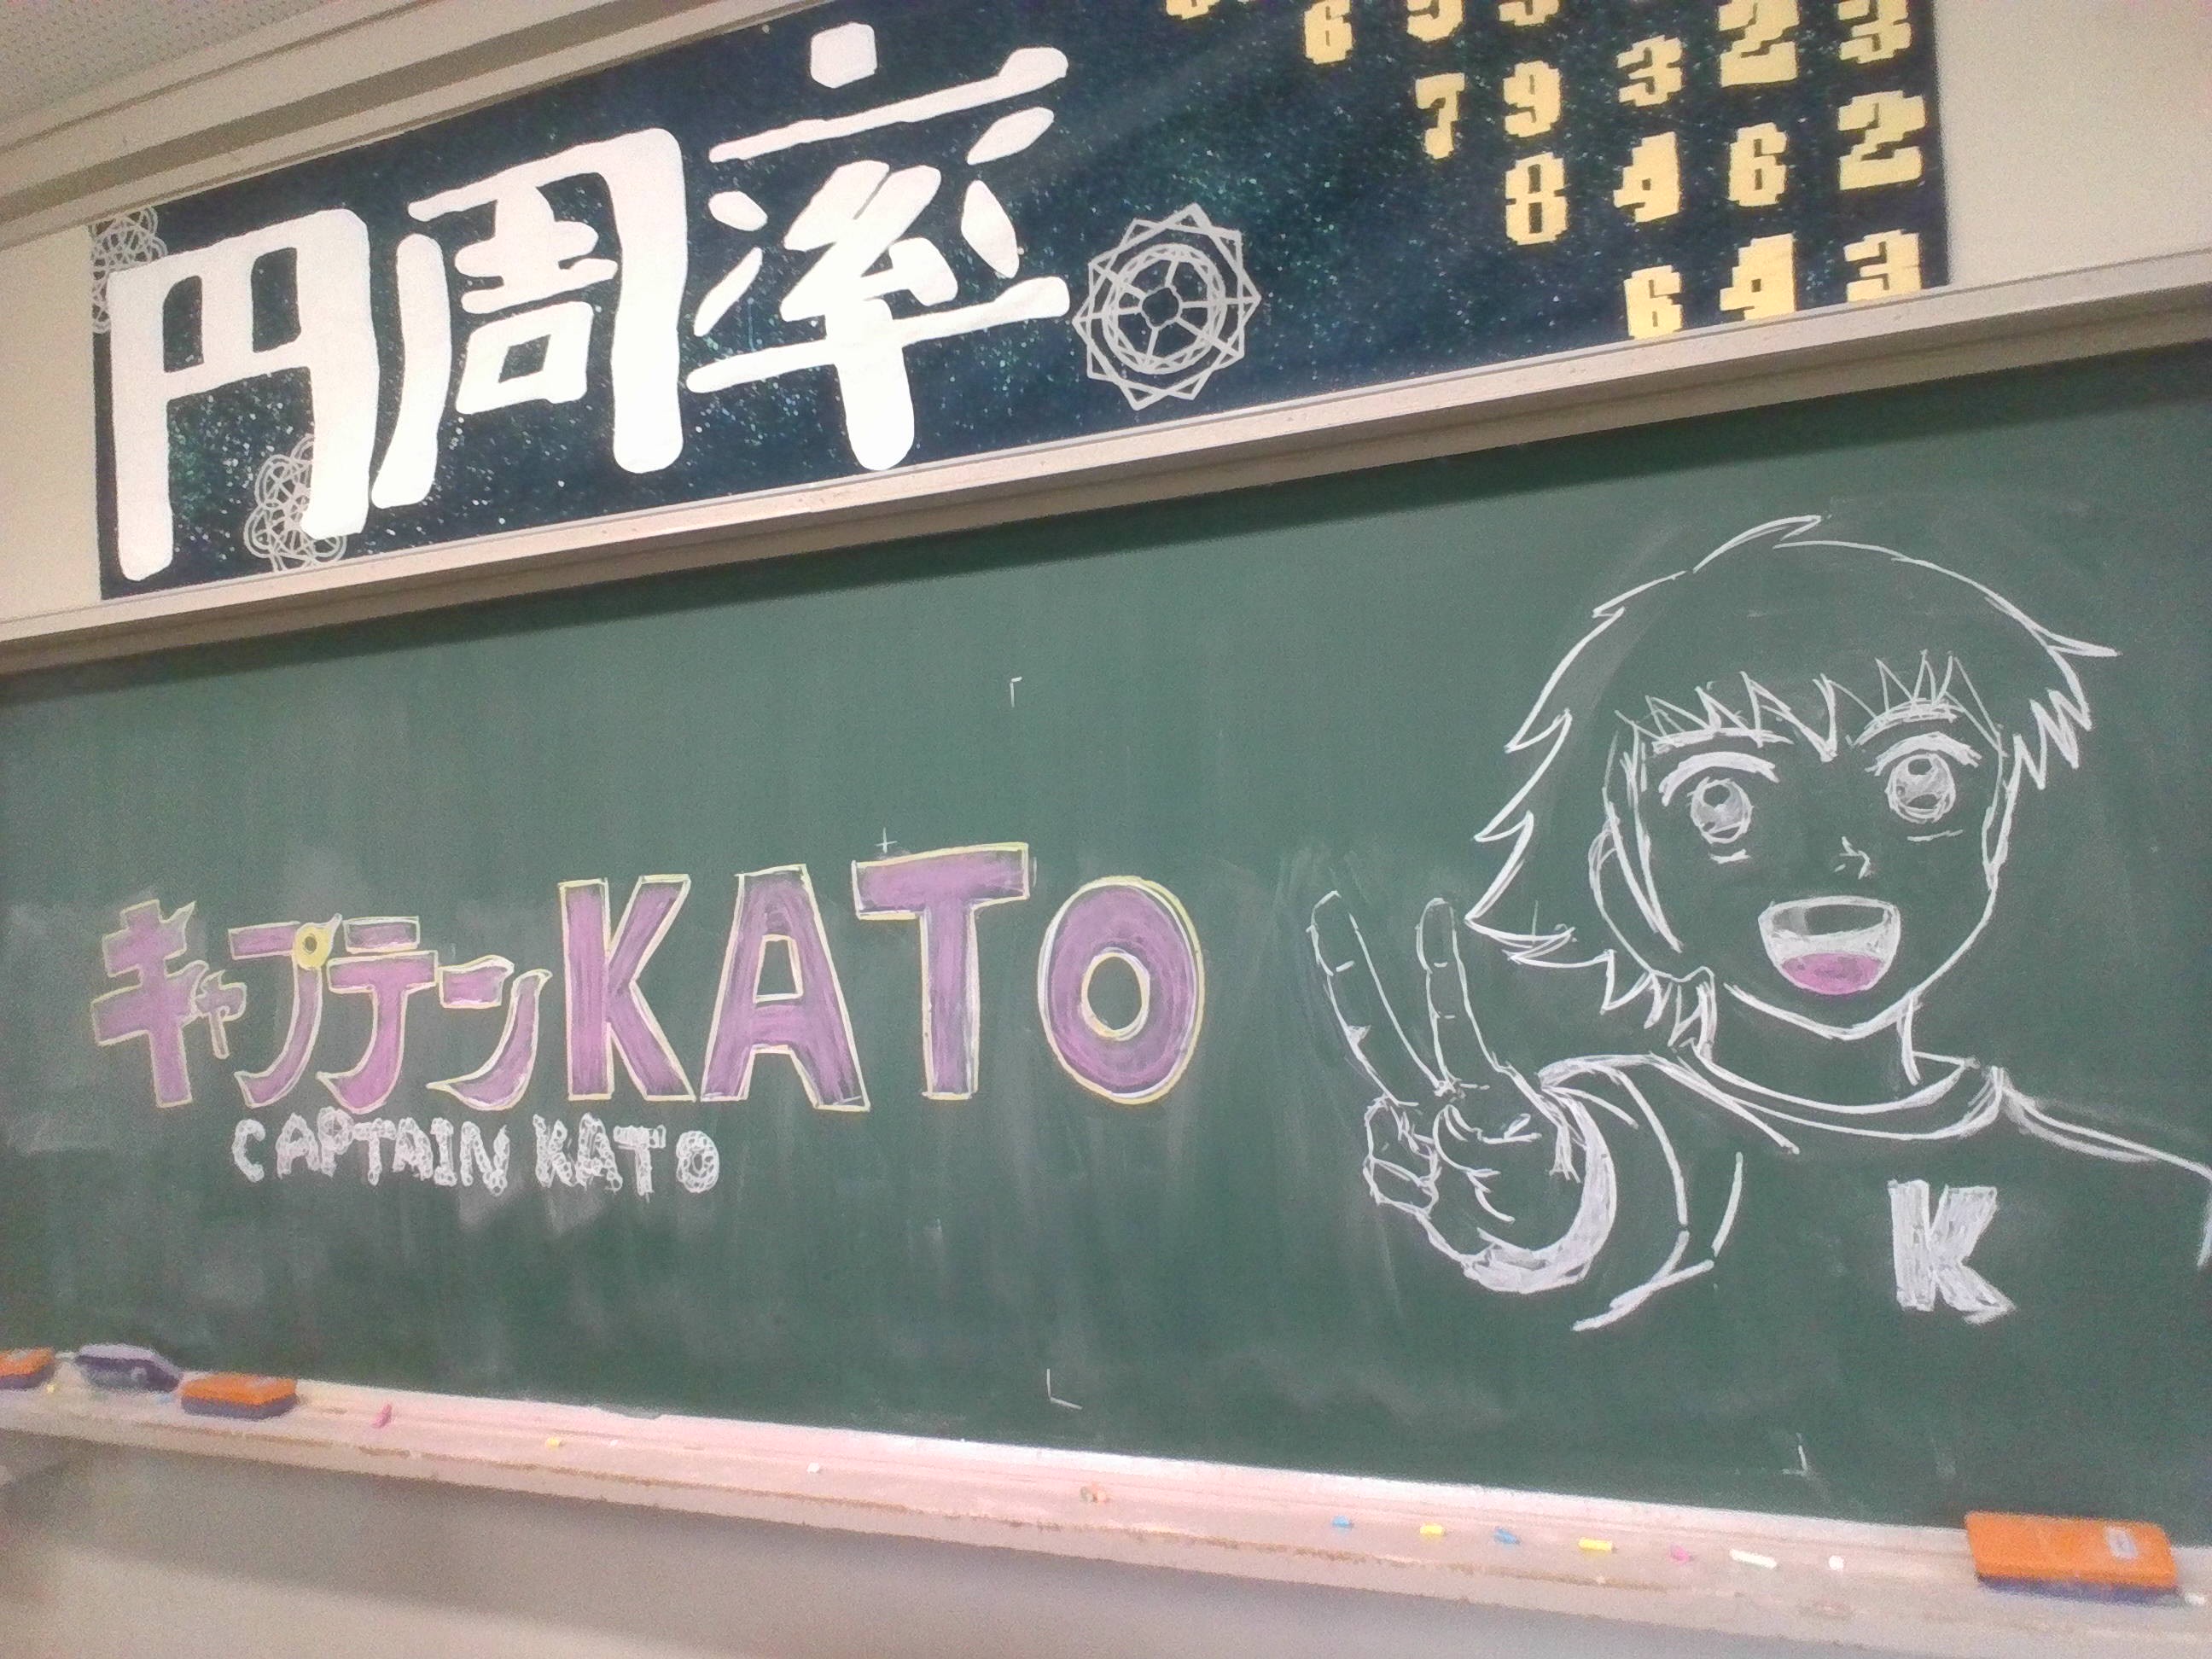 円周率
6 9 5 2 3
7 9 3
8 4 6 2
6 4 3
キャプテンKATO
CAPTAIN KATO
K